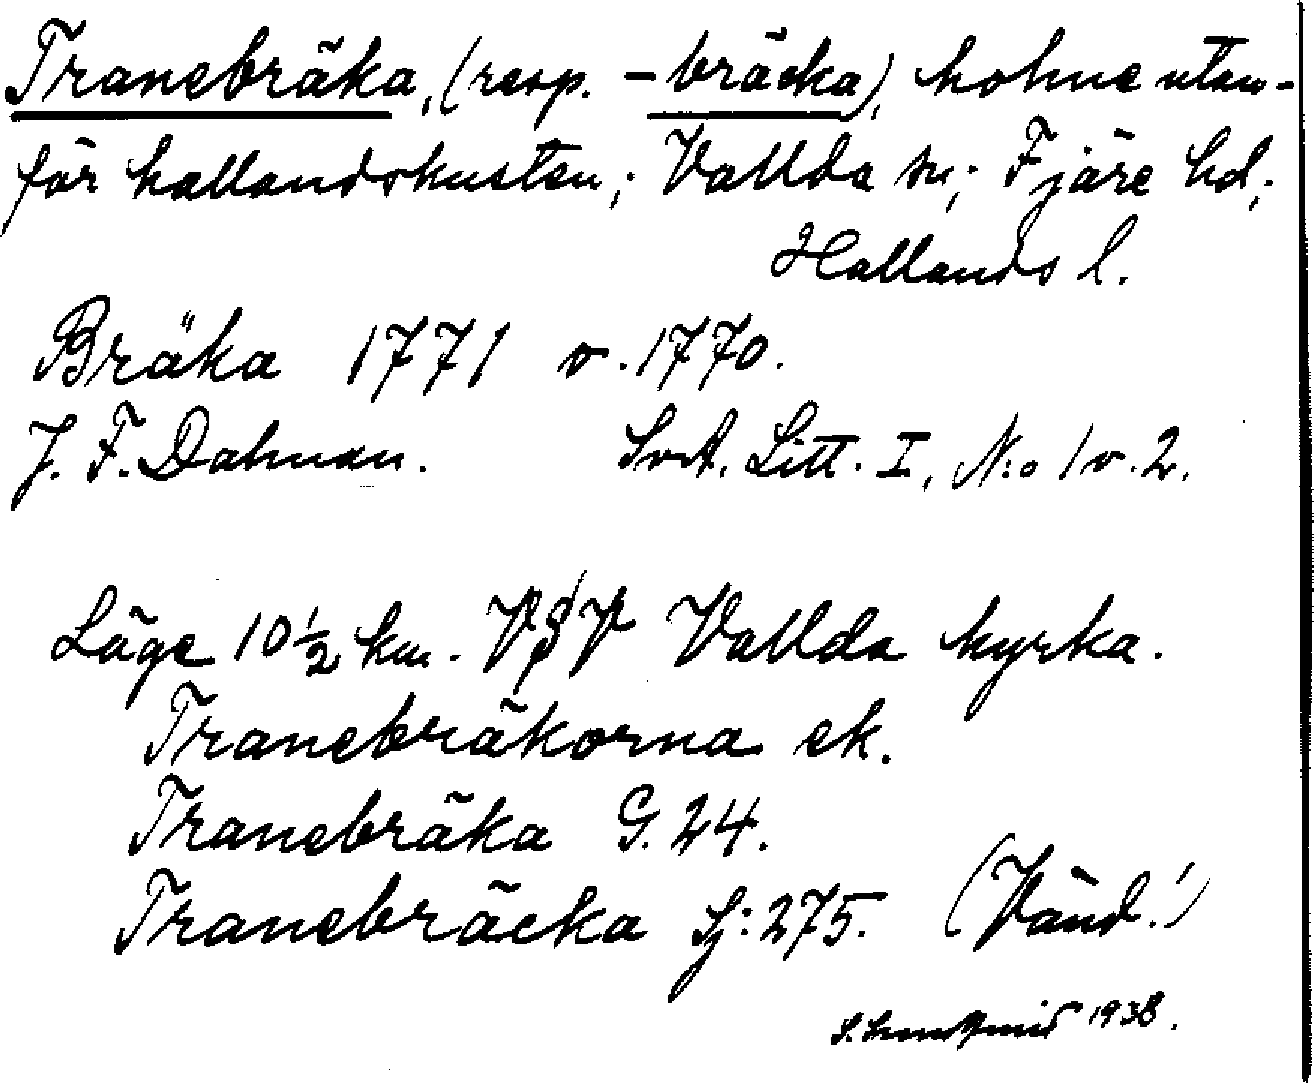 Tranebräka, (resp. -bräcka), holme utan-
för hallandskusten; Vallda sn; Fjäre hd;
Hallands l.
Bräka 1771 o. 1770.
J. F. Dahman. SvA. Litt. I, N:o 1 o. 2.
Läge 10½ km. VSV Vallda kyrka.
Tranebräkorna ek.
Tranebräka G. 24.
Tranebräcka Sj: 275. (Vänd!)
1938.